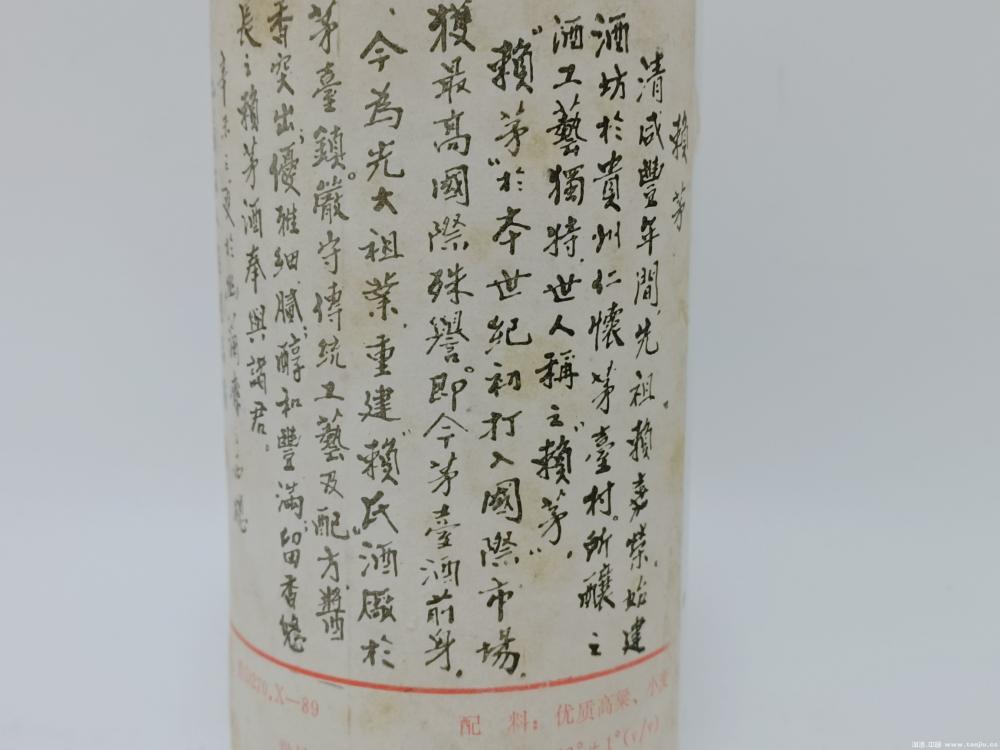 賴茅
清咸豐年間，先祖賴嘉榮，始建
酒坊於貴州仁懷茅臺村。所釀之
酒工藝獨特，世人稱之"賴茅"，
"賴茅"於本世紀初打入國際市場，
獲最高國際殊譽。即今茅臺酒前身，
今為光大祖業，重建"賴氏酒廠於
茅臺鎮。嚴守傳統工藝及配方，醬
香突出；優雅細膩；醇和豐滿；留香悠
長之賴茅酒奉與諸君。
辛未之夏於
270.X—89
配 料：优质高粱、小麦
±1°(v/v)